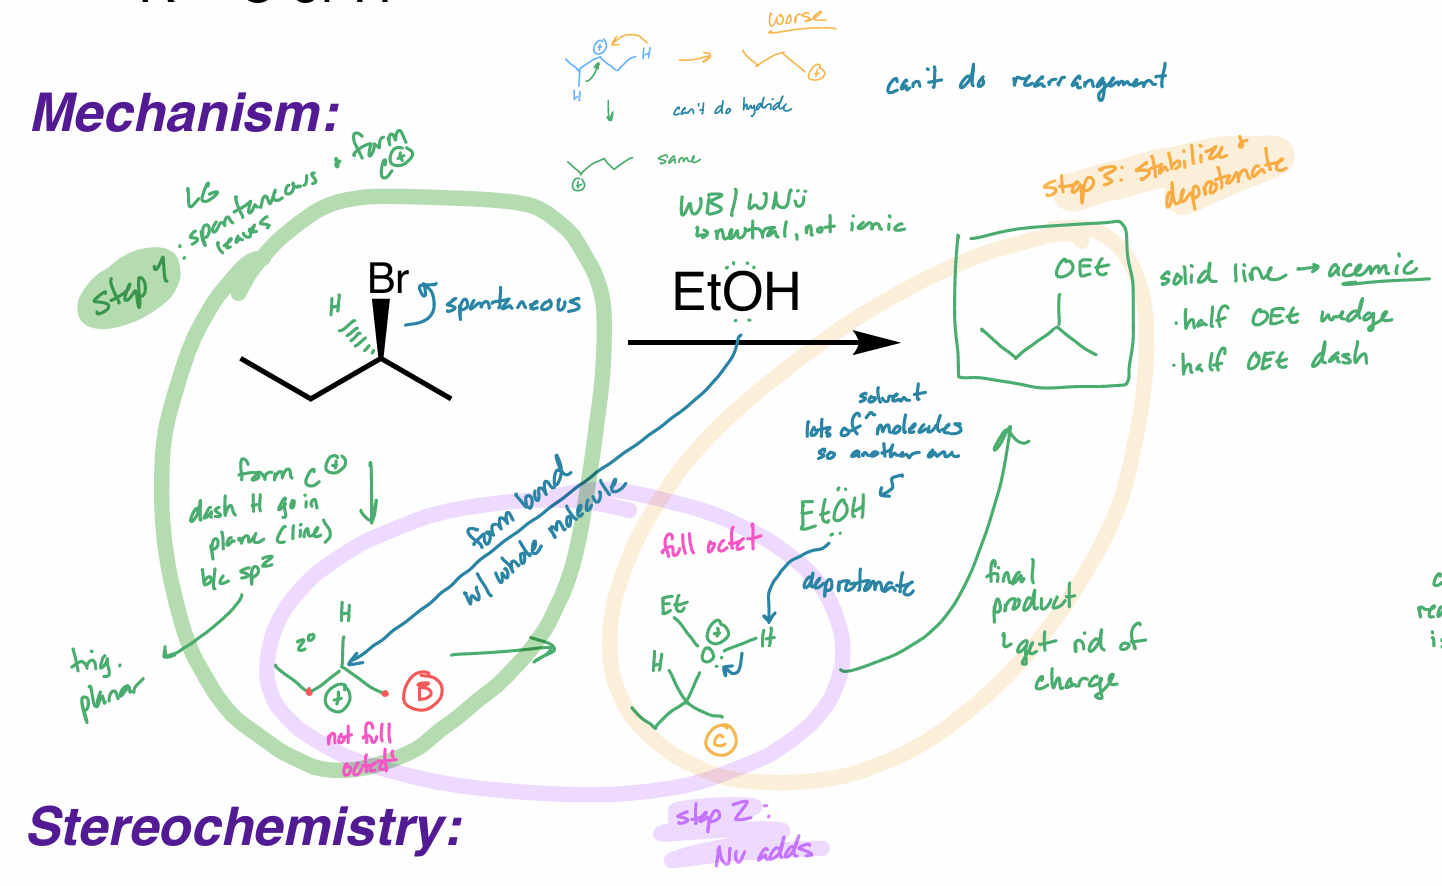 worse
H
H
can't do hydride
can't do rearrangement
same
Mechanism:
LG
• spontaneous & form C⊕
leaves
Step 1
WB / WNü
↳ neutral, not ionic
step 3: stabilize &
deprotonate
Br
H
spontaneous
EtOH
OEt
solid line → acemic
• half OEt wedge
• half OEt dash
solvent
lots of ^ molecules
so another one
EtÖH
form C⊕
dash H go in
plane (line)
b/c sp²
trig.
planar
form bond
w/ whole molecule
full octet
deprotonate
Et
⊕
O
H
H
C
final
product
↳ get rid of
charge
H
2°
⊕
B
not full
octet
Stereochemistry:
step 2:
Nu adds